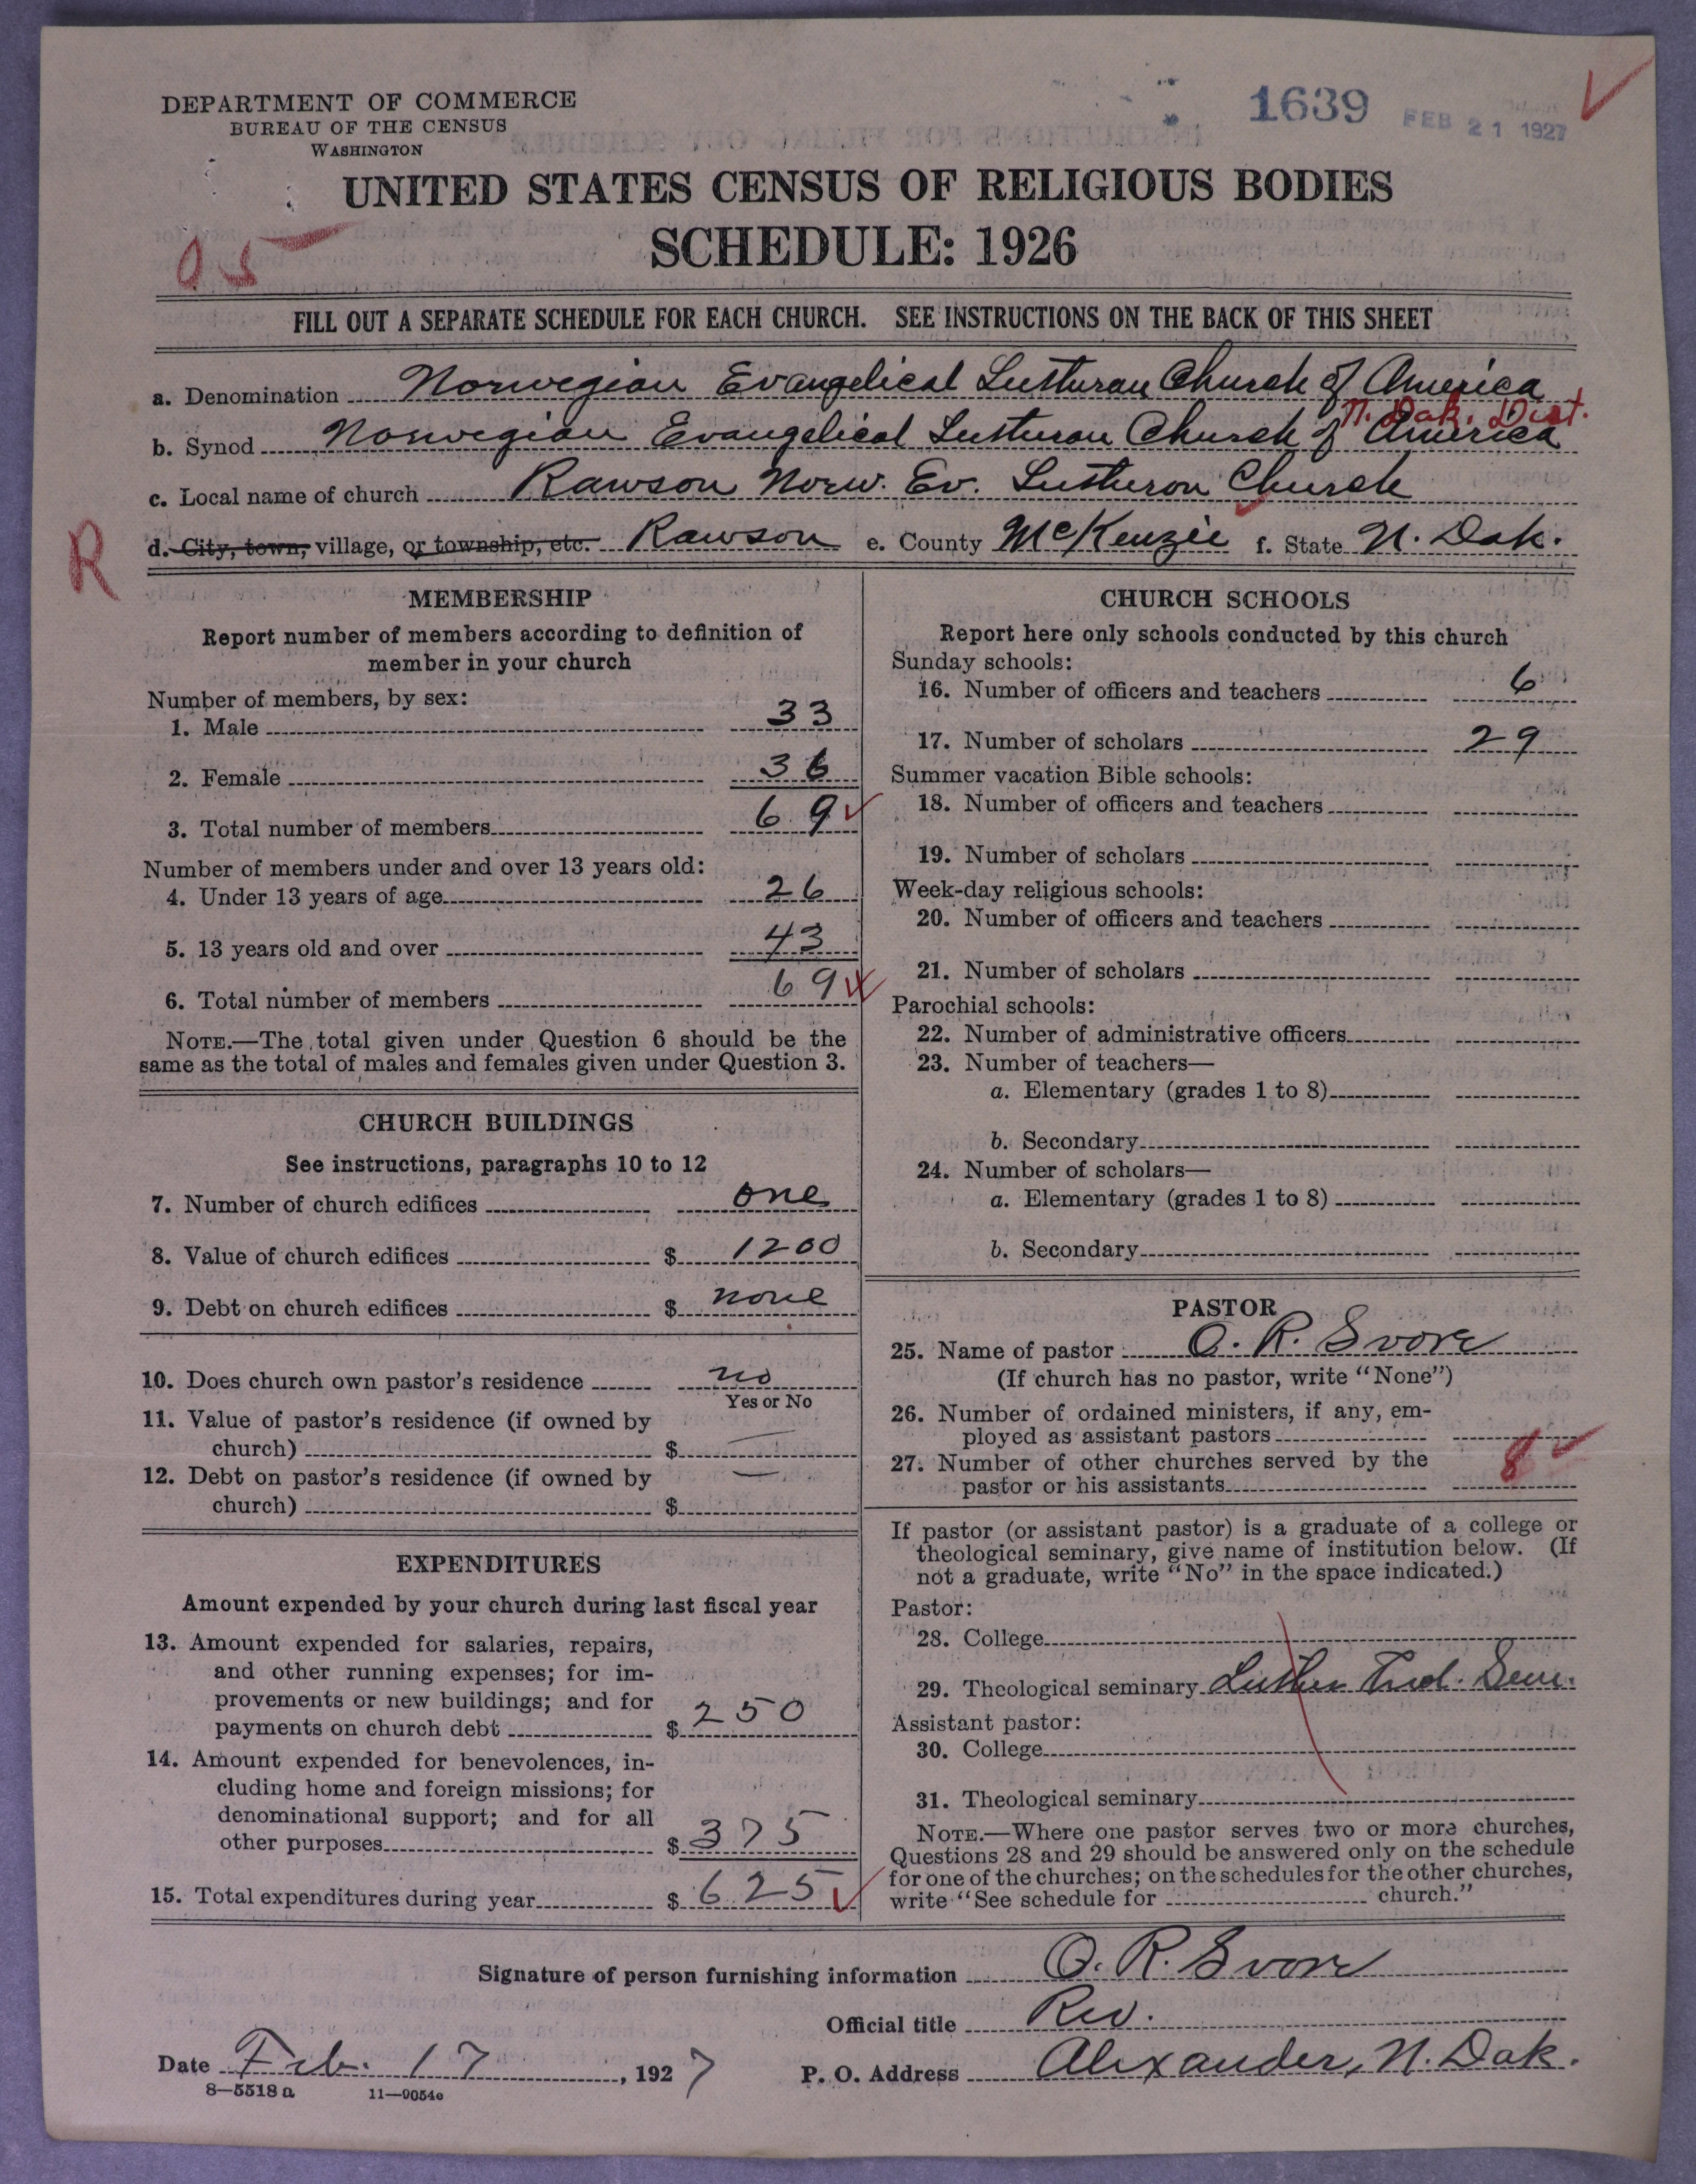 DEPARTMENT OF COMMERCE
BUREAU OF THE CENSUS
WASHINGTON
1639 FEB 21 1927
UNITED STATES CENSUS OF RELIGIOUS BODIES
SCHEDULE: 1926
05
FILL OUT A SEPARATE SCHEDULE FOR EACH CHURCH. SEE INSTRUCTIONS ON THE BACK OF THIS SHEET
a. Denomination Norwegian Evangelical Lutheran Church of America
N. Dak. Dist.
b. Synod Norwegian Evangelical Lutheran Church of America
c. Local name of church Rawson Norw. Ev. Lutheron Church
R
d. City, town, village, or township, etc. Rawson e. County McKenzie f. State N. Dak.
MEMBERSHIP
Report number of members according to definition of
member in your church
Number of members, by sex:
1. Male 33
2. Female 36
3. Total number of members 69
Number of members under and over 13 years old:
4. Under 13 years of age 26
5. 13 years old and over 43
6. Total number of members 69
NOTE.—The total given under Question 6 should be the
same as the total of males and females given under Question 3.
CHURCH BUILDINGS
See instructions, paragraphs 10 to 12
7. Number of church edifices one
8. Value of church edifices $ 1200
9. Debt on church edifices $ none
10. Does church own pastor's residence no
Yes or No
11. Value of pastor's residence (if owned by
church) $ —
12. Debt on pastor's residence (if owned by
church) $ —
EXPENDITURES
Amount expended by your church during last fiscal year
13. Amount expended for salaries, repairs,
and other running expenses; for im-
provements or new buildings; and for
payments on church debt $ 250
14. Amount expended for benevolences, in-
cluding home and foreign missions; for
denominational support; and for all
other purposes $ 375
15. Total expenditures during year $ 625
CHURCH SCHOOLS
Report here only schools conducted by this church
Sunday schools:
16. Number of officers and teachers 6
17. Number of scholars 29
Summer vacation Bible schools:
18. Number of officers and teachers
19. Number of scholars
Week-day religious schools:
20. Number of officers and teachers
21. Number of scholars
Parochial schools:
22. Number of administrative officers
23. Number of teachers—
a. Elementary (grades 1 to 8)
b. Secondary
24. Number of scholars—
a. Elementary (grades 1 to 8)
b. Secondary
PASTOR
25. Name of pastor O. R. Svore
(If church has no pastor, write "None")
26. Number of ordained ministers, if any, em-
ployed as assistant pastors
27. Number of other churches served by the
pastor or his assistants 8
If pastor (or assistant pastor) is a graduate of a college or
theological seminary, give name of institution below. (If
not a graduate, write "No" in the space indicated.)
Pastor:
28. College
29. Theological seminary Luther Theol. Sem.
Assistant pastor:
30. College
31. Theological seminary
NOTE.—Where one pastor serves two or more churches,
Questions 28 and 29 should be answered only on the schedule
for one of the churches; on the schedules for the other churches,
write "See schedule for church."
Signature of person furnishing information O. R. Svore
Official title Rev.
Date Feb. 17, 1927 P. O. Address Alexander, N. Dak.
8—5518a 11—9054c